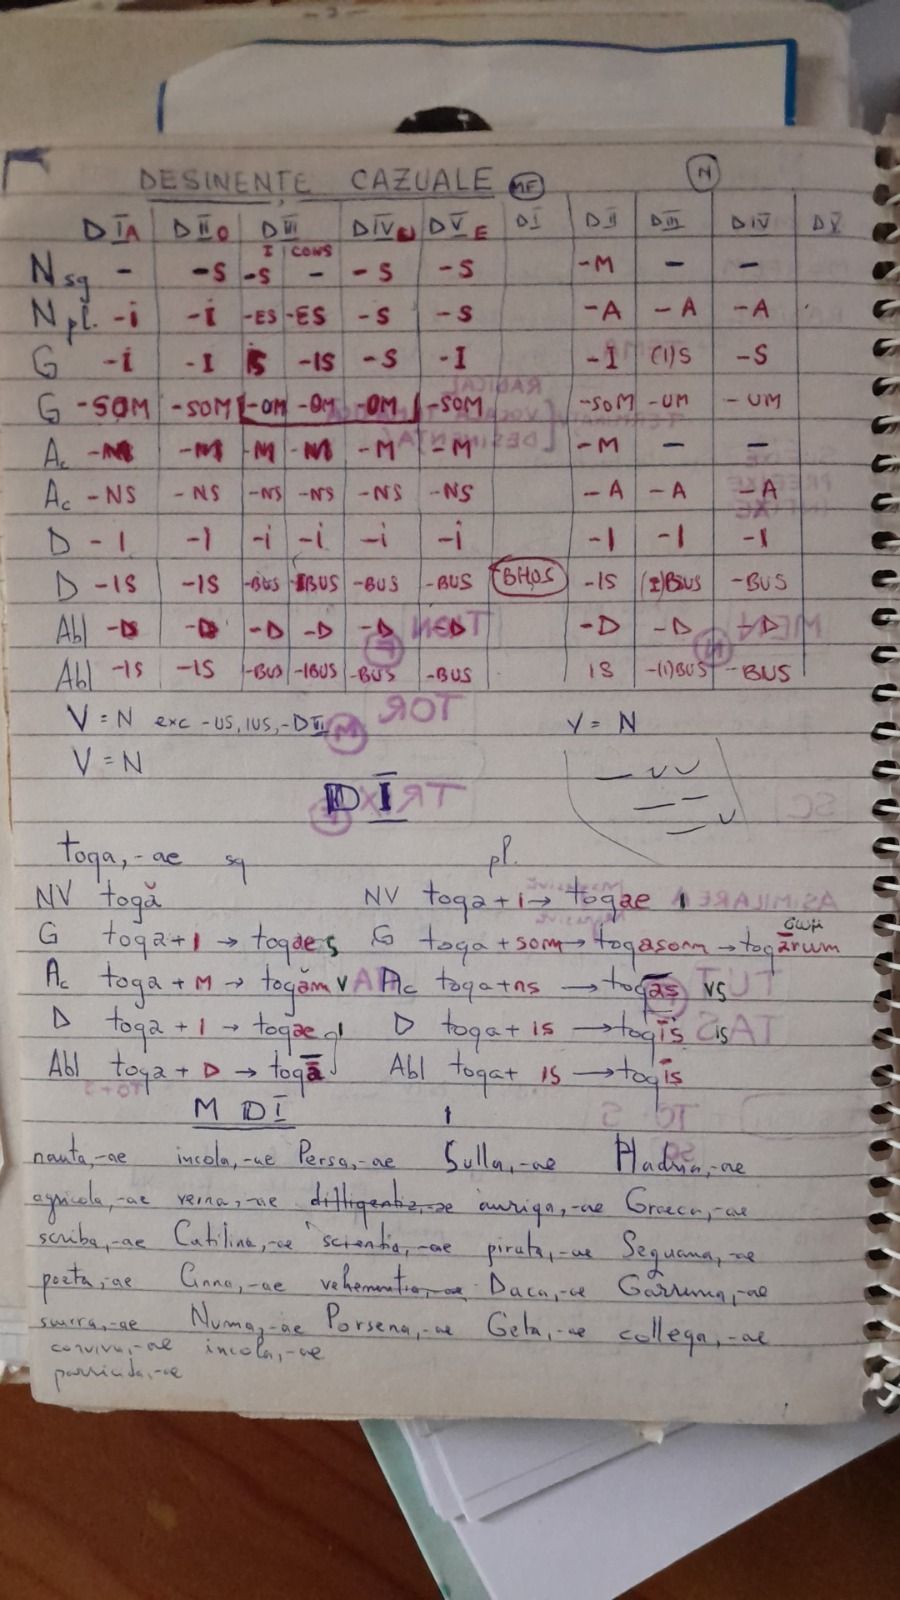 DESINENȚE CAZUALE MF N
D I A D II O D III D IV U D V E D I D II D III D IV D V
I CONS
N sg - -S -S - -S -S -M - -
N pl. -i -I -ES -ES -S -S -A -A -A
G -i -I IS -IS -S -I -I (I)S -S
G -SOM -SOM -OM -OM -OM -SOM -SOM -UM -UM
Ac -M -M -M -M -M -M -M - -
Ac -NS -NS -NS -NS -NS -NS -A -A -A
D -I -I -i -i -i -i -I -I -I
D -IS -IS -BUS -IBUS -BUS -BUS BHOS -IS (I)BUS -BUS
Abl -D -D -D -D -D -D -D -D -D
Abl -IS -IS -BUS -IBUS -BUS -BUS IS -(I)BUS -BUS
V = N exc -US, IUS, -D II V = N
V = N
D I
toga, -ae sg pl.
NV togă NV toga + i → togae
G toga + I → togaes G toga + som → togasom → togārum
Ac toga + M → togăm v Ac toga + ns → togās vs
D toga + I → togae D toga + is → togīs is
Abl toga + D → togā Abl toga + is → togīs
M D I
nauta, -ae incola, -ae Persa, -ae Sulla, -ae Hadria, -ae
agricola, -ae verna, -ae dilligentia, -ae auriga, -ae Graeca, -ae
scriba, -ae Catilina, -ae scientia, -ae pirata, -ae Sequana, -ae
poeta, -ae Cinna, -ae vehementia, -ae Daca, -ae Garumna, -ae
scurra, -ae Numa, -ae Porsena, -ae Geta, -ae collega, -ae
conviva, -ae incola, -ae
parricida, -ae